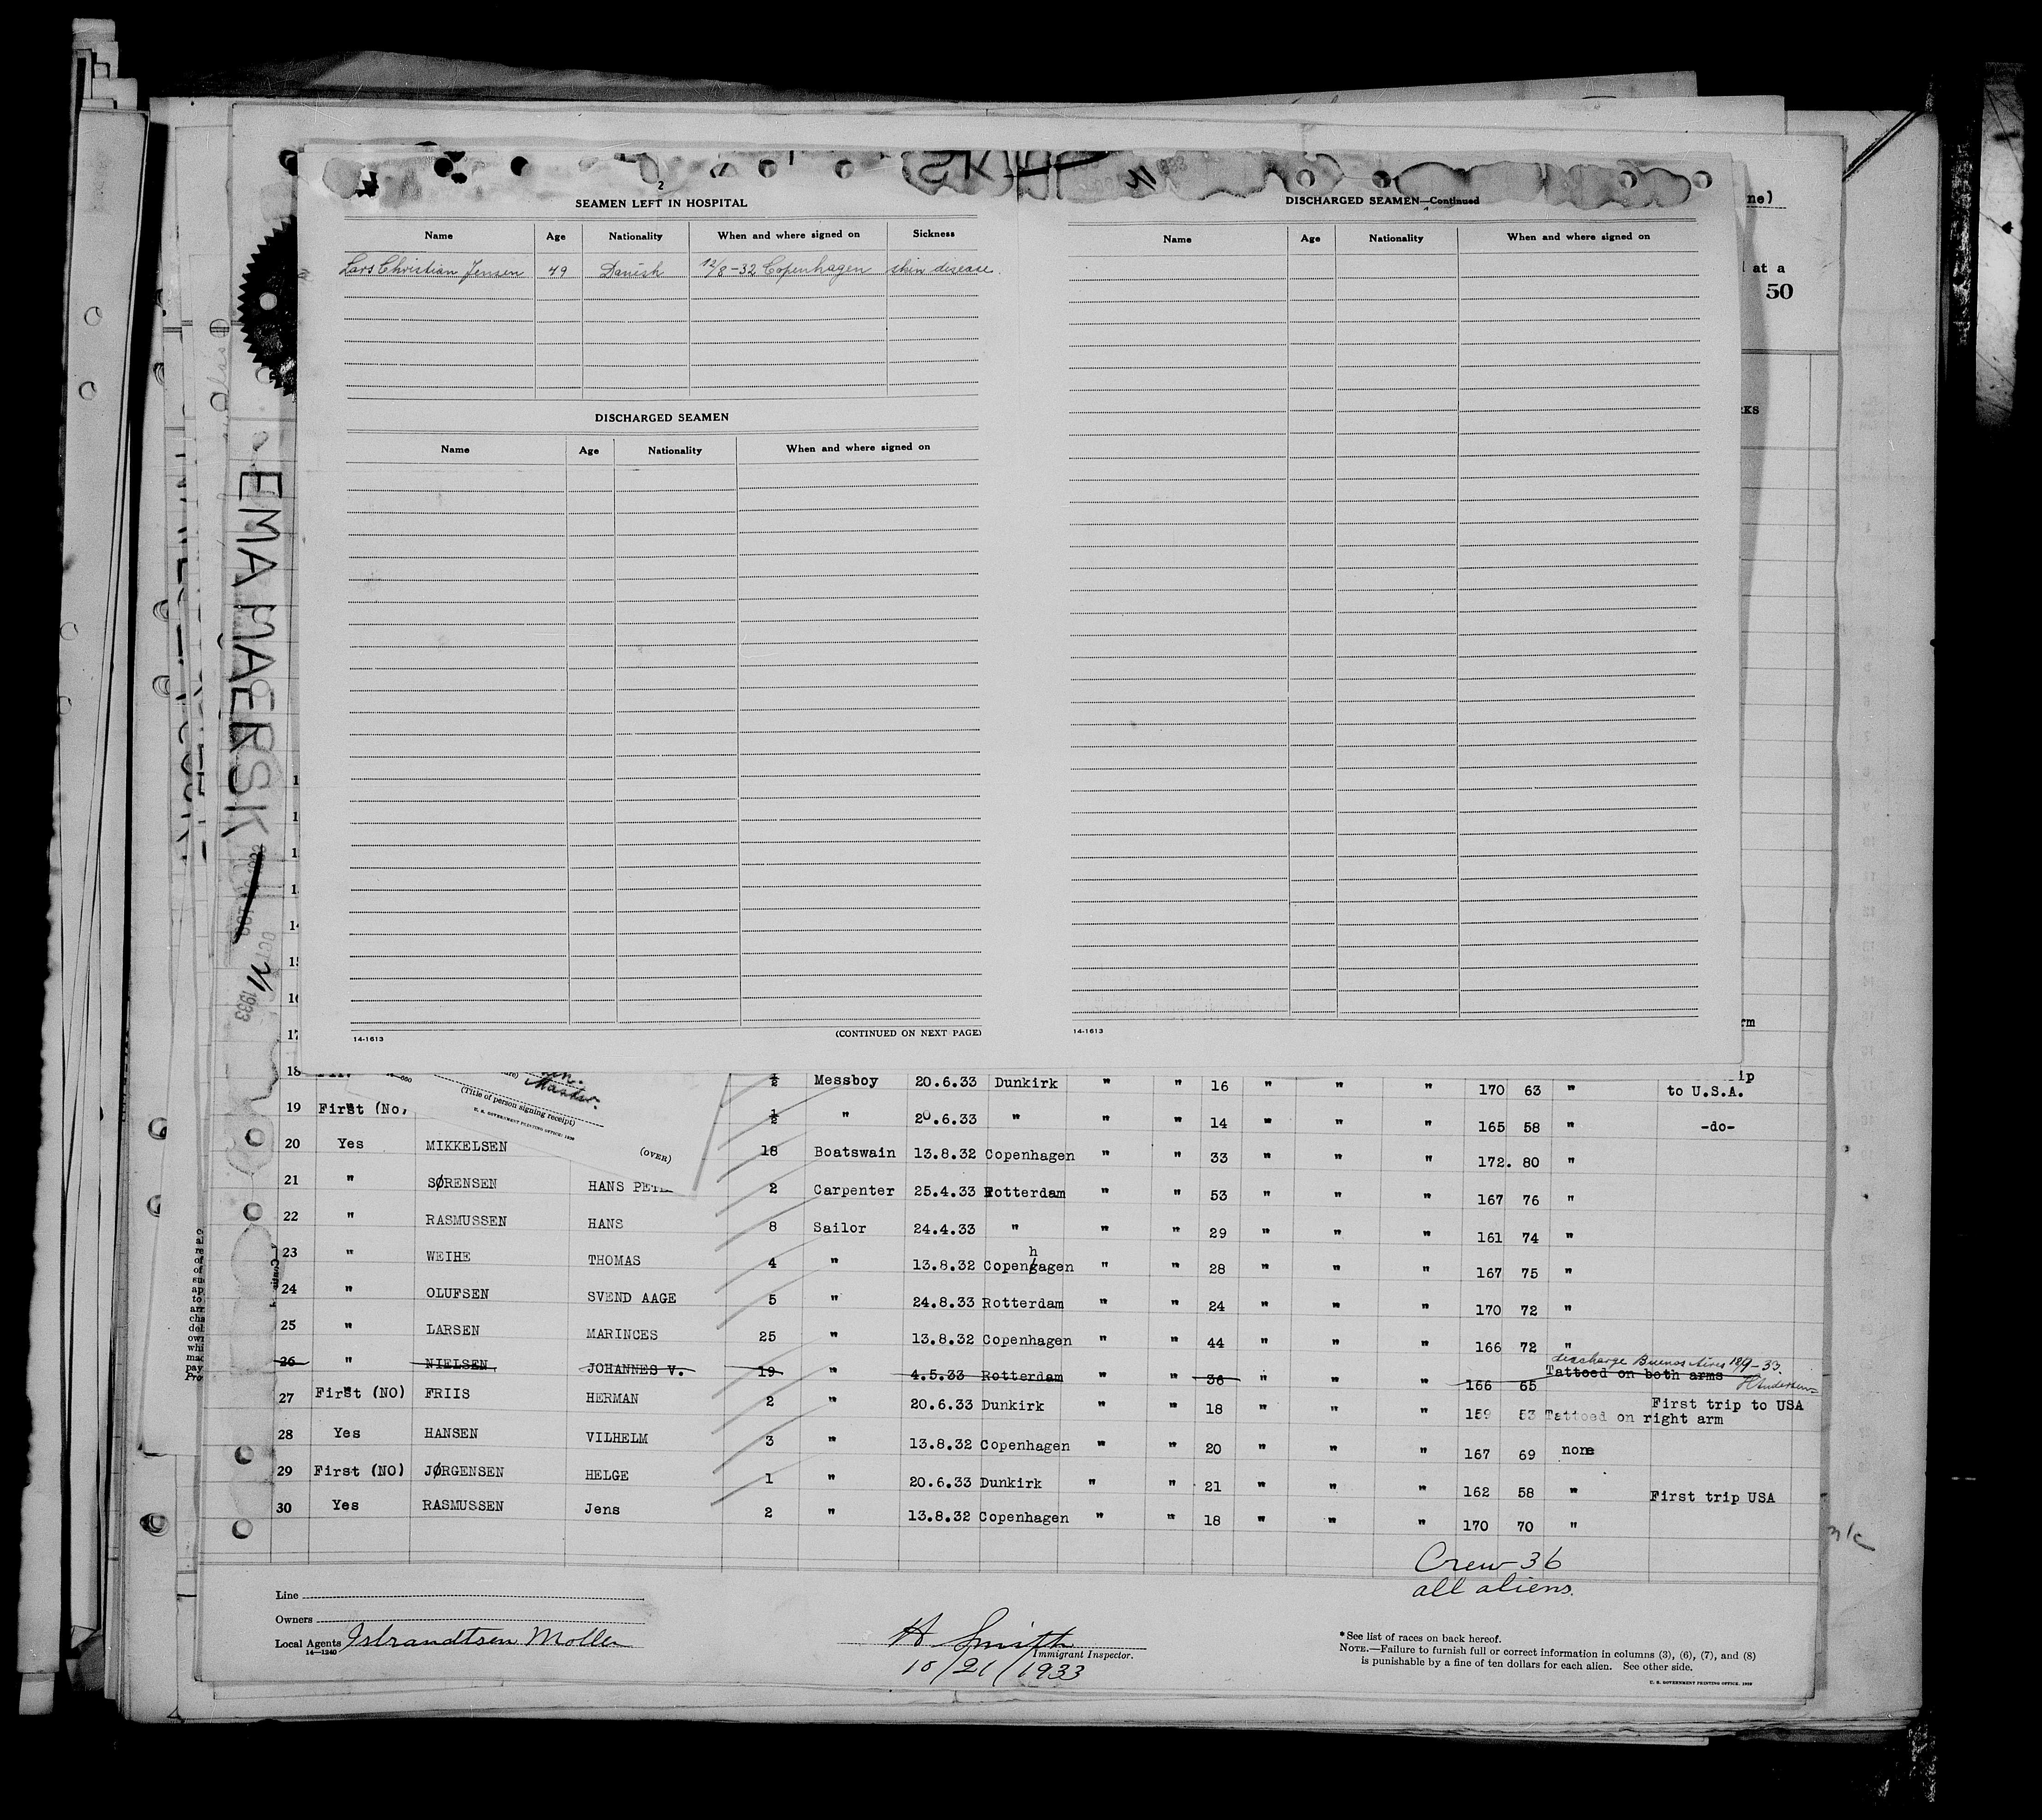 2
SEAMEN LEFT IN HOSPITAL
Name Age Nationality When and where signed on Sickness
Lars Christian Jensen 49 Danish 12/8-32 Copenhagen skin disease.
DISCHARGED SEAMEN
Name Age Nationality When and where signed on
(CONTINUED ON NEXT PAGE)
14-1613
DISCHARGED SEAMEN—Continued
Name Age Nationality When and where signed on
14-1613
ne)
at a
50
RKS
rm
EMA MAERSK
OCT 21 1933
Master.
(Title of person signing receipt)
U. S. GOVERNMENT PRINTING OFFICE: 1930
(OVER)
18 ½ Messboy 20.6.33 Dunkirk " " 16 " " " 170 63 " ip to U.S.A.
19 First (No, ½ " 20.6.33 " " " 14 " " " 165 58 " -do-
20 Yes MIKKELSEN 18 Boatswain 13.8.32 Copenhagen " " 33 " " " 172. 80 "
21 " SØRENSEN HANS PETE 2 Carpenter 25.4.33 Rotterdam " " 53 " " " 167 76 "
22 " RASMUSSEN HANS 8 Sailor 24.4.33 " " " 29 " " " 161 74 "
23 " WEIHE THOMAS 4 " 13.8.32 Copenhagen " " 28 " " " 167 75 "
24 " OLUFSEN SVEND AAGE 5 " 24.8.33 Rotterdam " " 24 " " " 170 72 "
25 " LARSEN MARINCES 25 " 13.8.32 Copenhagen " " 44 " " " 166 72 "
discharge Buenos Aires 18/9-33
26 " NIELSEN JOHANNES V. 19 " 4.5.33 Rotterdam 36 " " " 166 65 Tattoed on both arms HAndersen
27 First (NO) FRIIS HERMAN 2 " 20.6.33 Dunkirk " " 18 " " " 159 53 Tattoed on right arm First trip to USA
28 Yes HANSEN VILHELM 3 " 13.8.32 Copenhagen " " 20 " " " 167 69 none
29 First (NO) JØRGENSEN HELGE 1 " 20.6.33 Dunkirk " " 21 " " " 162 58 " First trip USA
30 Yes RASMUSSEN Jens 2 " 13.8.32 Copenhagen " " 18 " " " 170 70 "
Crew 36
all aliens.
Line
Owners
Local Agents Isbrandtsen Moller
14—1240
H Smith
Immigrant Inspector.
10/21/1933
* See list of races on back hereof.
NOTE.—Failure to furnish full or correct information in columns (3), (6), (7), and (8)
is punishable by a fine of ten dollars for each alien. See other side.
U. S. GOVERNMENT PRINTING OFFICE: 1929